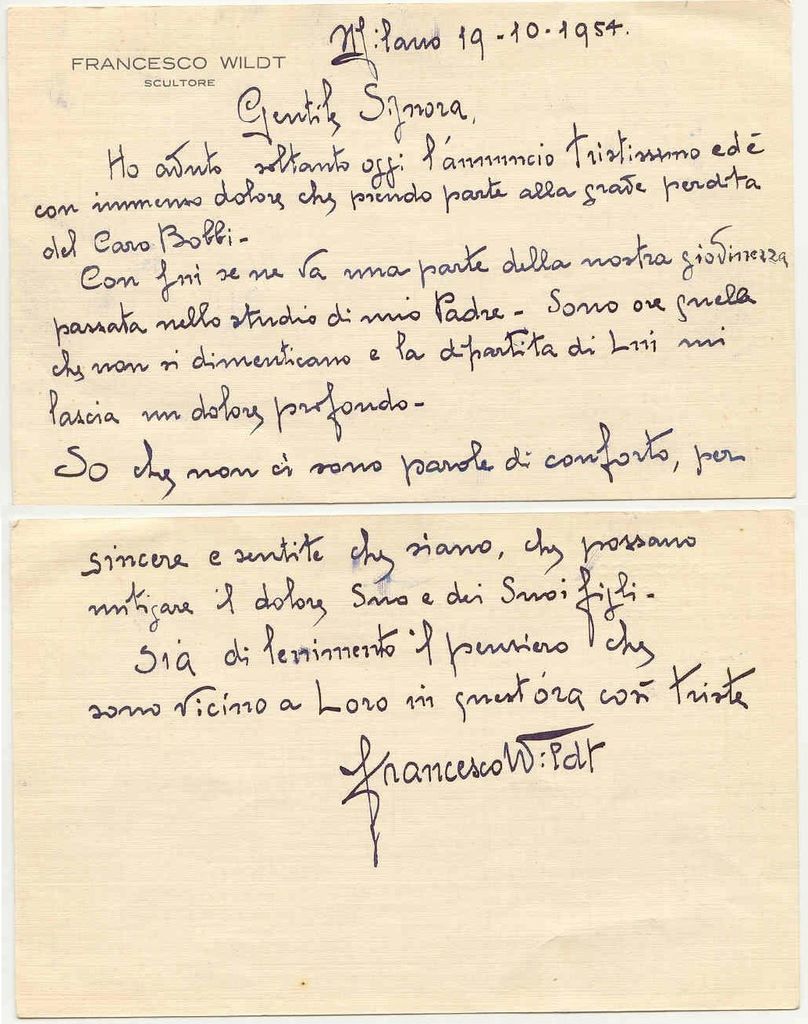 Milano 19-10-1954.
FRANCESCO WILDT
SCULTORE
Gentile Signora,
Ho avuto soltanto oggi l'annuncio tristissimo ed è
con immenso dolore che prendo parte alla grave perdita
del Caro Bobbi-
Con Lui se ne va una parte della nostra giovinezza
passata nello studio di mio Padre- Sono ore quelle
che non si dimenticano e la dipartita di Lui mi
lascia un dolore profondo-
So che non ci sono parole di conforto, per
sincere e sentite che siano, che possano
mitigare il dolore Suo e dei Suoi figli-
Sia di lenimento il pensiero che
sono vicino a Loro in quest'ora così triste
Francesco Wildt